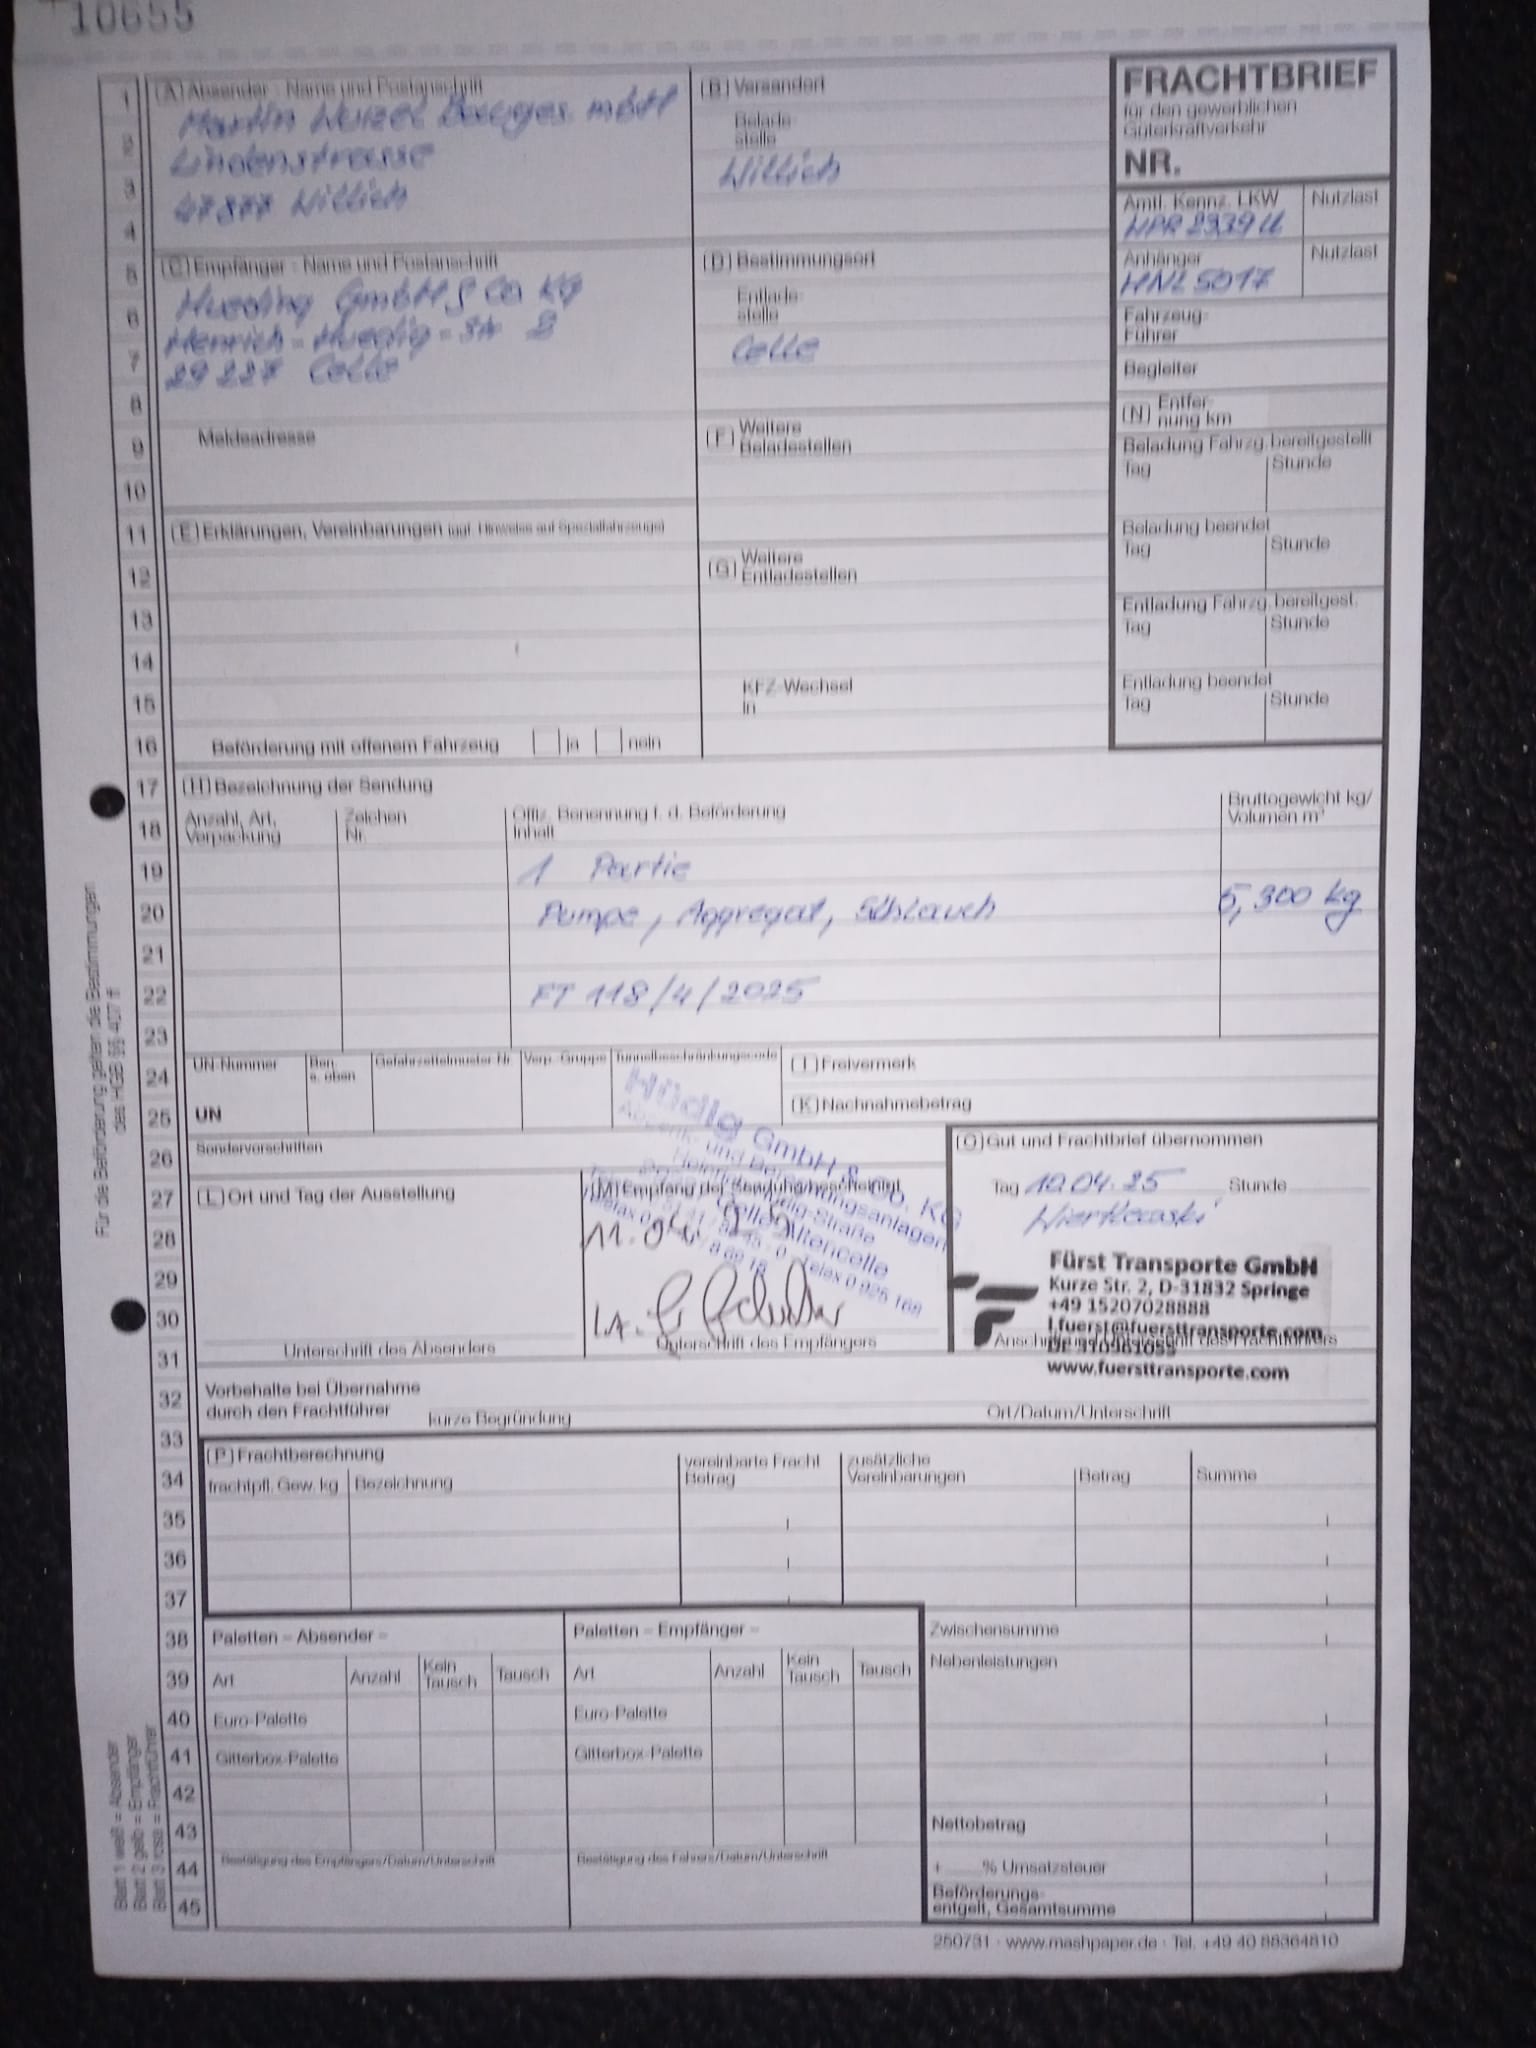 10655
FRACHTBRIEF
für den gewerblichen
Güterkraftverkehr
NR.
(A) Absender - Name und Postanschrift
Martin Wurzel Bauges. mbH
Lindenstrasse
47877 Willich
(B) Versandort
Belade-
stelle
Willich
Amtl. Kennz. LKW
Nutzlast
WPR 2939U
Anhänger
Nutzlast
WNL 5017
Fahrzeug-
Führer
Begleiter
(N) Entfer-
nung km
(C) Empfänger - Name und Postanschrift
Hueding GmbH & Co KG
Henrich-Huedig-Str 2
29227 Celle
(D) Bestimmungsort
Entlade-
stelle
Celle
Meldeadresse
(F) Weitere
Beladestellen
Beladung Fahrzg. bereitgestellt
Tag Stunde
Beladung beendet
Tag Stunde
Entladung Fahrzg. bereitgest.
Tag Stunde
Entladung beendet
Tag Stunde
(E) Erklärungen, Vereinbarungen (ggf. Hinweise auf Spezialfahrzeuge)
(G) Weitere
Entladestellen
KFZ-Wechsel
in
Beförderung mit offenem Fahrzeug ja nein
(H) Bezeichnung der Sendung
Anzahl, Art,
Verpackung
Zeichen
Nr.
Offiz. Benennung f. d. Beförderung
Inhalt
Bruttogewicht kg/
Volumen m³
1 Partie
Pumpe, Aggregat, Schlauch 5,300 kg
FT 118/4/2025
UN-Nummer
UN
Ben.
s. oben
Gefahrzettelmuster Nr.
Verp.-Gruppe
Tunnelbeschränkungscode
(I) Freivermerk
(K) Nachnahmebetrag
Sondervorschriften
(L) Ort und Tag der Ausstellung
Unterschrift des Absenders
(M) Empfang der Sendung bescheinigt
Hüdig GmbH & Co. KG
Heinrich-Hüdig-Straße
Celle-Altencelle
11.04.25
i.A.
Unterschrift des Empfängers
(O) Gut und Frachtbrief übernommen
Tag 10.04.25 Stunde
Wiertkowski
Fürst Transporte GmbH
Kurze Str. 2, D-31832 Springe
+49 15207028888
l.fuerst@fuersttransporte.com
DE 310961055
www.fuersttransporte.com
Anschrift und Unterschrift des Frachtführers
Vorbehalte bei Übernahme
durch den Frachtführer
kurze Begründung
Ort/Datum/Unterschrift
(P) Frachtberechnung
frachtpfl. Gew. kg
Bezeichnung
vereinbarte Fracht
Betrag
zusätzliche
Vereinbarungen
Betrag
Summe
Paletten – Absender –
Art
Anzahl
Kein
Tausch
Tausch
Euro-Palette
Gitterbox-Palette
Bestätigung des Empfängers/Datum/Unterschrift
Paletten – Empfänger –
Art
Anzahl
Kein
Tausch
Tausch
Euro-Palette
Gitterbox-Palette
Bestätigung des Fahrers/Datum/Unterschrift
Zwischensumme
Nebenleistungen
Nettobetrag
+ ____% Umsatzsteuer
Beförderungs-
entgelt, Gesamtsumme
250731 · www.mashpaper.de · Tel. +49 40 88364810
Für die Beförderung gelten die Bestimmungen
des HGB §§ 407 ff
Blatt 1 weiß = Absender
Blatt 2 gelb = Empfänger
Blatt 3 rosa = Frachtführer
1
2
3
4
5
6
7
8
9
10
11
12
13
14
15
16
17
18
19
20
21
22
23
24
25
26
27
28
29
30
31
32
33
34
35
36
37
38
39
40
41
42
43
44
45